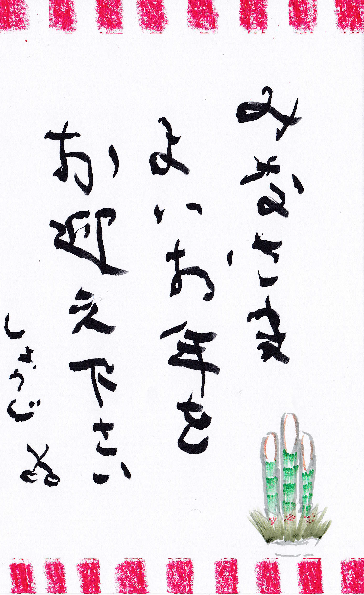 みなさま
よいお年を
お迎え下さい
しょうじ ぬ